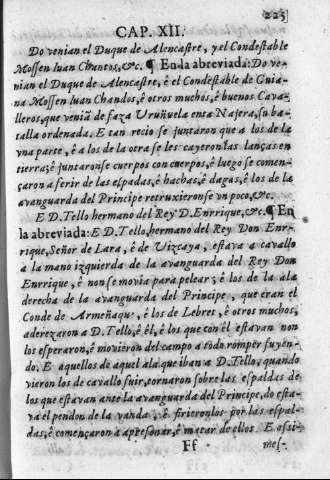 225
CAP. XII.
Do venian el Duque de Alencastre, y el Condestable
Mossen Iuan Chantos, &c. ¶ En la abreviada: Do ve-
nian el Duque de Alencastre, è el Condestable de Guia-
na Mossen Iuan Chandos, è otros muchos, è buenos Cava-
lleros, que veniã de faza Uruñuela enta Najera, su ba-
talla ordenada. E tan recio se juntaron que a los de la
vna parte, è a los de la otra se les cayeron las lanças en
tierra; è juntaronse cuerpos con cuerpos, è luego se comen-
çaron a ferir de las espadas, è hachas, è dagas, è los de la
avanguarda del Principe retruxieronse vn poco, &c.
E D. Tello hermano del Rey D. Enrrique, &c. ¶ En
la abreviada: E D. Tello, hermano del Rey Don Enr-
rique, Señor de Lara, è de Vizcaya, estava a cavallo
a la mano izquierda de la avanguarda del Rey Don
Enrrique, è non se movia para pelear; è los de la ala
derecha de la avanguarda del Principe, que eran el
Conde de Armeñaque, è los de Lebret, è otros muchos,
aderezaron a D. Tello, è èl, è los que con èl estavan non
los esperaron, è movieron del campo a todo romper fuyen-
do. E aquellos de aquel ala que iban a D. Tello, quando
vieron los de cavallo fuir, tornaron sobre las espaldas de
los que estavan ante la avanguarda del Principe, do esta-
va el pendon de la vanda, è firieronlos por las espal-
das, è començaron a apresonar, è matar de ellos. E assi-
Ff mes-